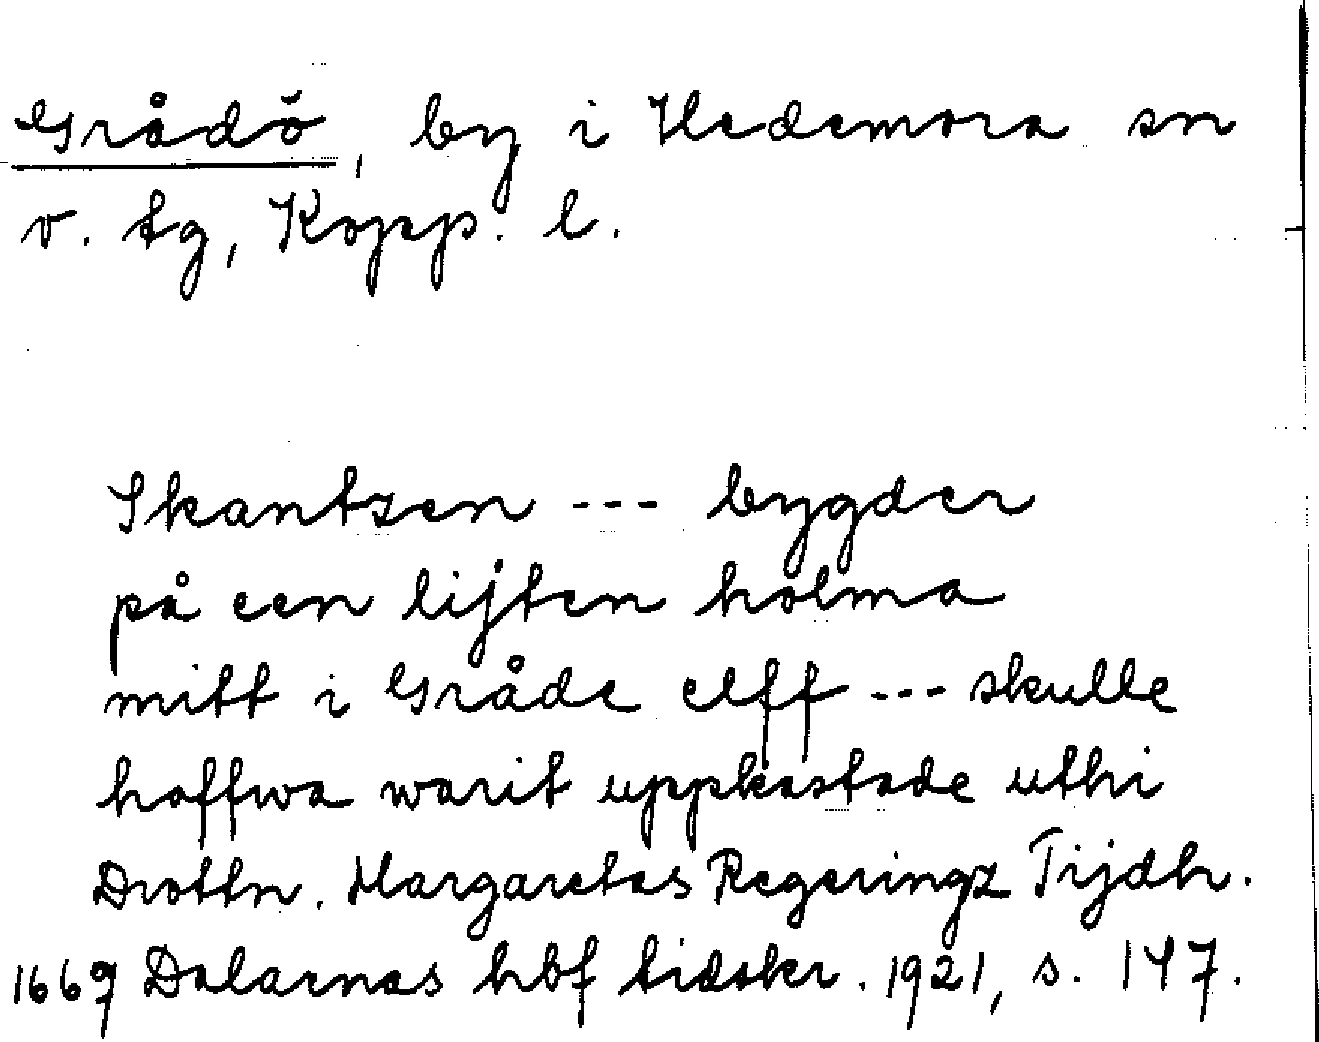 Grådö, by i Hedemora sn
v. tg, Kopp. l.
Skantzen --- bygder
på een lijten holma
mitt i Gråde elff --- skulle
haffwa warit uppkastade uthi
Drottn. Margaretas Regeringz Tijdh.
1669 Dalarnas hbf tidskr. 1921, s. 147.